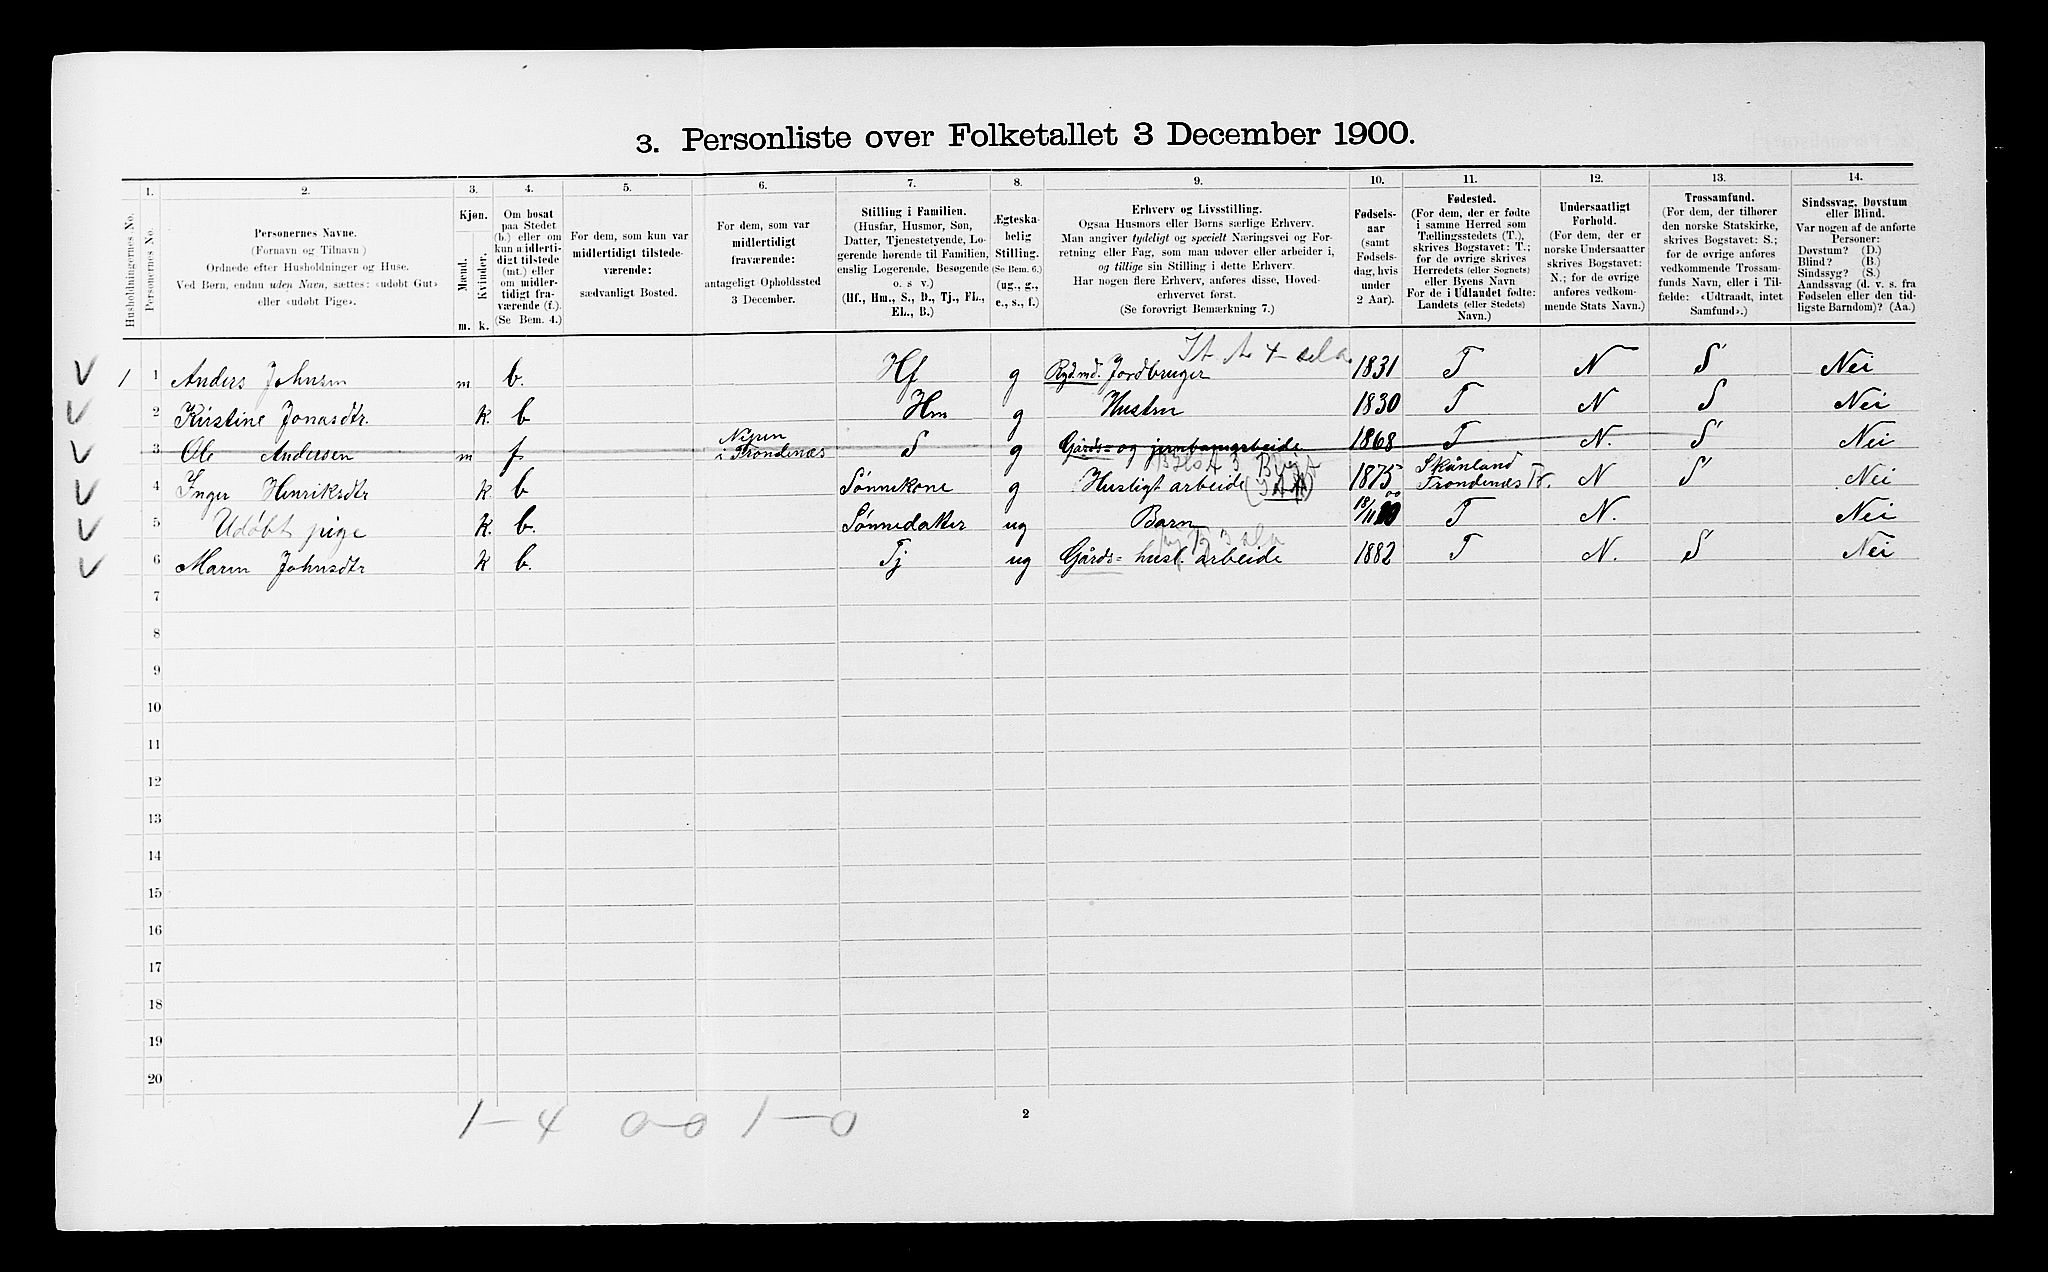 3. Personliste over Folketallet 3 December 1900.
1. 2. 3. 4. 5. 6. 7. 8. 9. 10. 11. 12. 13. 14.
Husholdningernes No.
Personernes No.
Personernes Navne.
(Fornavn og Tilnavn)
Ordnede efter Husholdninger og Huse.
Ved Børn, endnu uden Navn, sættes: «udøbt Gut»
eller «udøbt Pige».
Kjøn.
Mænd.
Kvinder.
m. k.
Om bosat
paa Stedet
(b.) eller om
kun midlerti-
digt tilstede
(mt.) eller
om midler-
tidigt fra-
værende (f.).
(Se Bem. 4.)
For dem, som kun var
midlertidigt tilstede-
værende:
sædvanligt Bosted.
For dem, som var
midlertidigt
fraværende:
antageligt Opholdssted
3 December.
Stilling i Familien.
(Husfar, Husmor, Søn,
Datter, Tjenestetyende, Lo-
gerende hørende til Familien,
enslig Logerende, Besøgende
o. s. v.)
(Hf., Hm., S., D., Tj., FL.,
EL., B.)
Ægteska-
belig
Stilling.
(Se Bem. 6.)
(ug., g.,
e., s., f.)
Erhverv og Livsstilling.
Ogsaa Husmors eller Børns særlige Erhverv.
Man angiver tydeligt og specielt Næringsvei og For-
retning eller Fag, som man udøver eller arbeider i,
og tillige sin Stilling i dette Erhverv.
Har nogen flere Erhverv, anføres disse, Hoved-
erhvervet først.
(Se forøvrigt Bemærkning 7.)
Fødsels-
aar
(samt
Fødsels-
dag, hvis
under
2 Aar).
Fødested.
(For dem, der er fødte
i samme Herred som
Tællingsstedets (T.),
skrives Bogstavet: T.;
for de øvrige skrives
Herredets (eller Sognets)
eller Byens Navn
For de i Udlandet fødte:
Landets (eller Stedets)
Navn.)
Undersaatligt
Forhold.
(For dem, der er
norske Undersaatter
skrives Bogstavet:
N.; for de øvrige
anføres vedkom-
mende Stats Navn.)
Trossamfund.
(For dem, der tilhører
den norske Statskirke,
skrives Bogstavet: S.;
for de øvrige anføres
vedkommende Trossam-
funds Navn, eller i Til-
fælde: «Udtraadt, intet
Samfund».)
Sindssvag, Døvstum
eller Blind.
Var nogen af de anførte
Personer:
Døvstum? (D.)
Blind? (B.)
Sindssyg? (S.)
Aandssvag (d. v. s. fra
Fødselen eller den tid-
ligste Barndom)? (Aa.)
1 1 Anders Johnsen m b. Hf g Rydmd. Jordbruger 1831 T N S Nei
2 Kirstine Jonasdtr. k. b Hm g Hustru 1830 T N S Nei
3 Ole Andersen m f i Trondenæs S g Gårds= og jernbanearbeide 1868 T N. S Nei
4 Inger Henriksdtr k b Sønnekone g Husligt arbeide 1875 Skånland Trondenæs N S Nei
5 Udøbt pige k. b. Sønnedatter ug Barn 18/11 00 T N. Nei
6 Maren Johnsdtr k b. Tj ug Gårds= husl. arbeide 1882 T N. S Nei
7
8
9
10
11
12
13
14
15
16
17
18
19
20
1-4 0-0 1-0
2